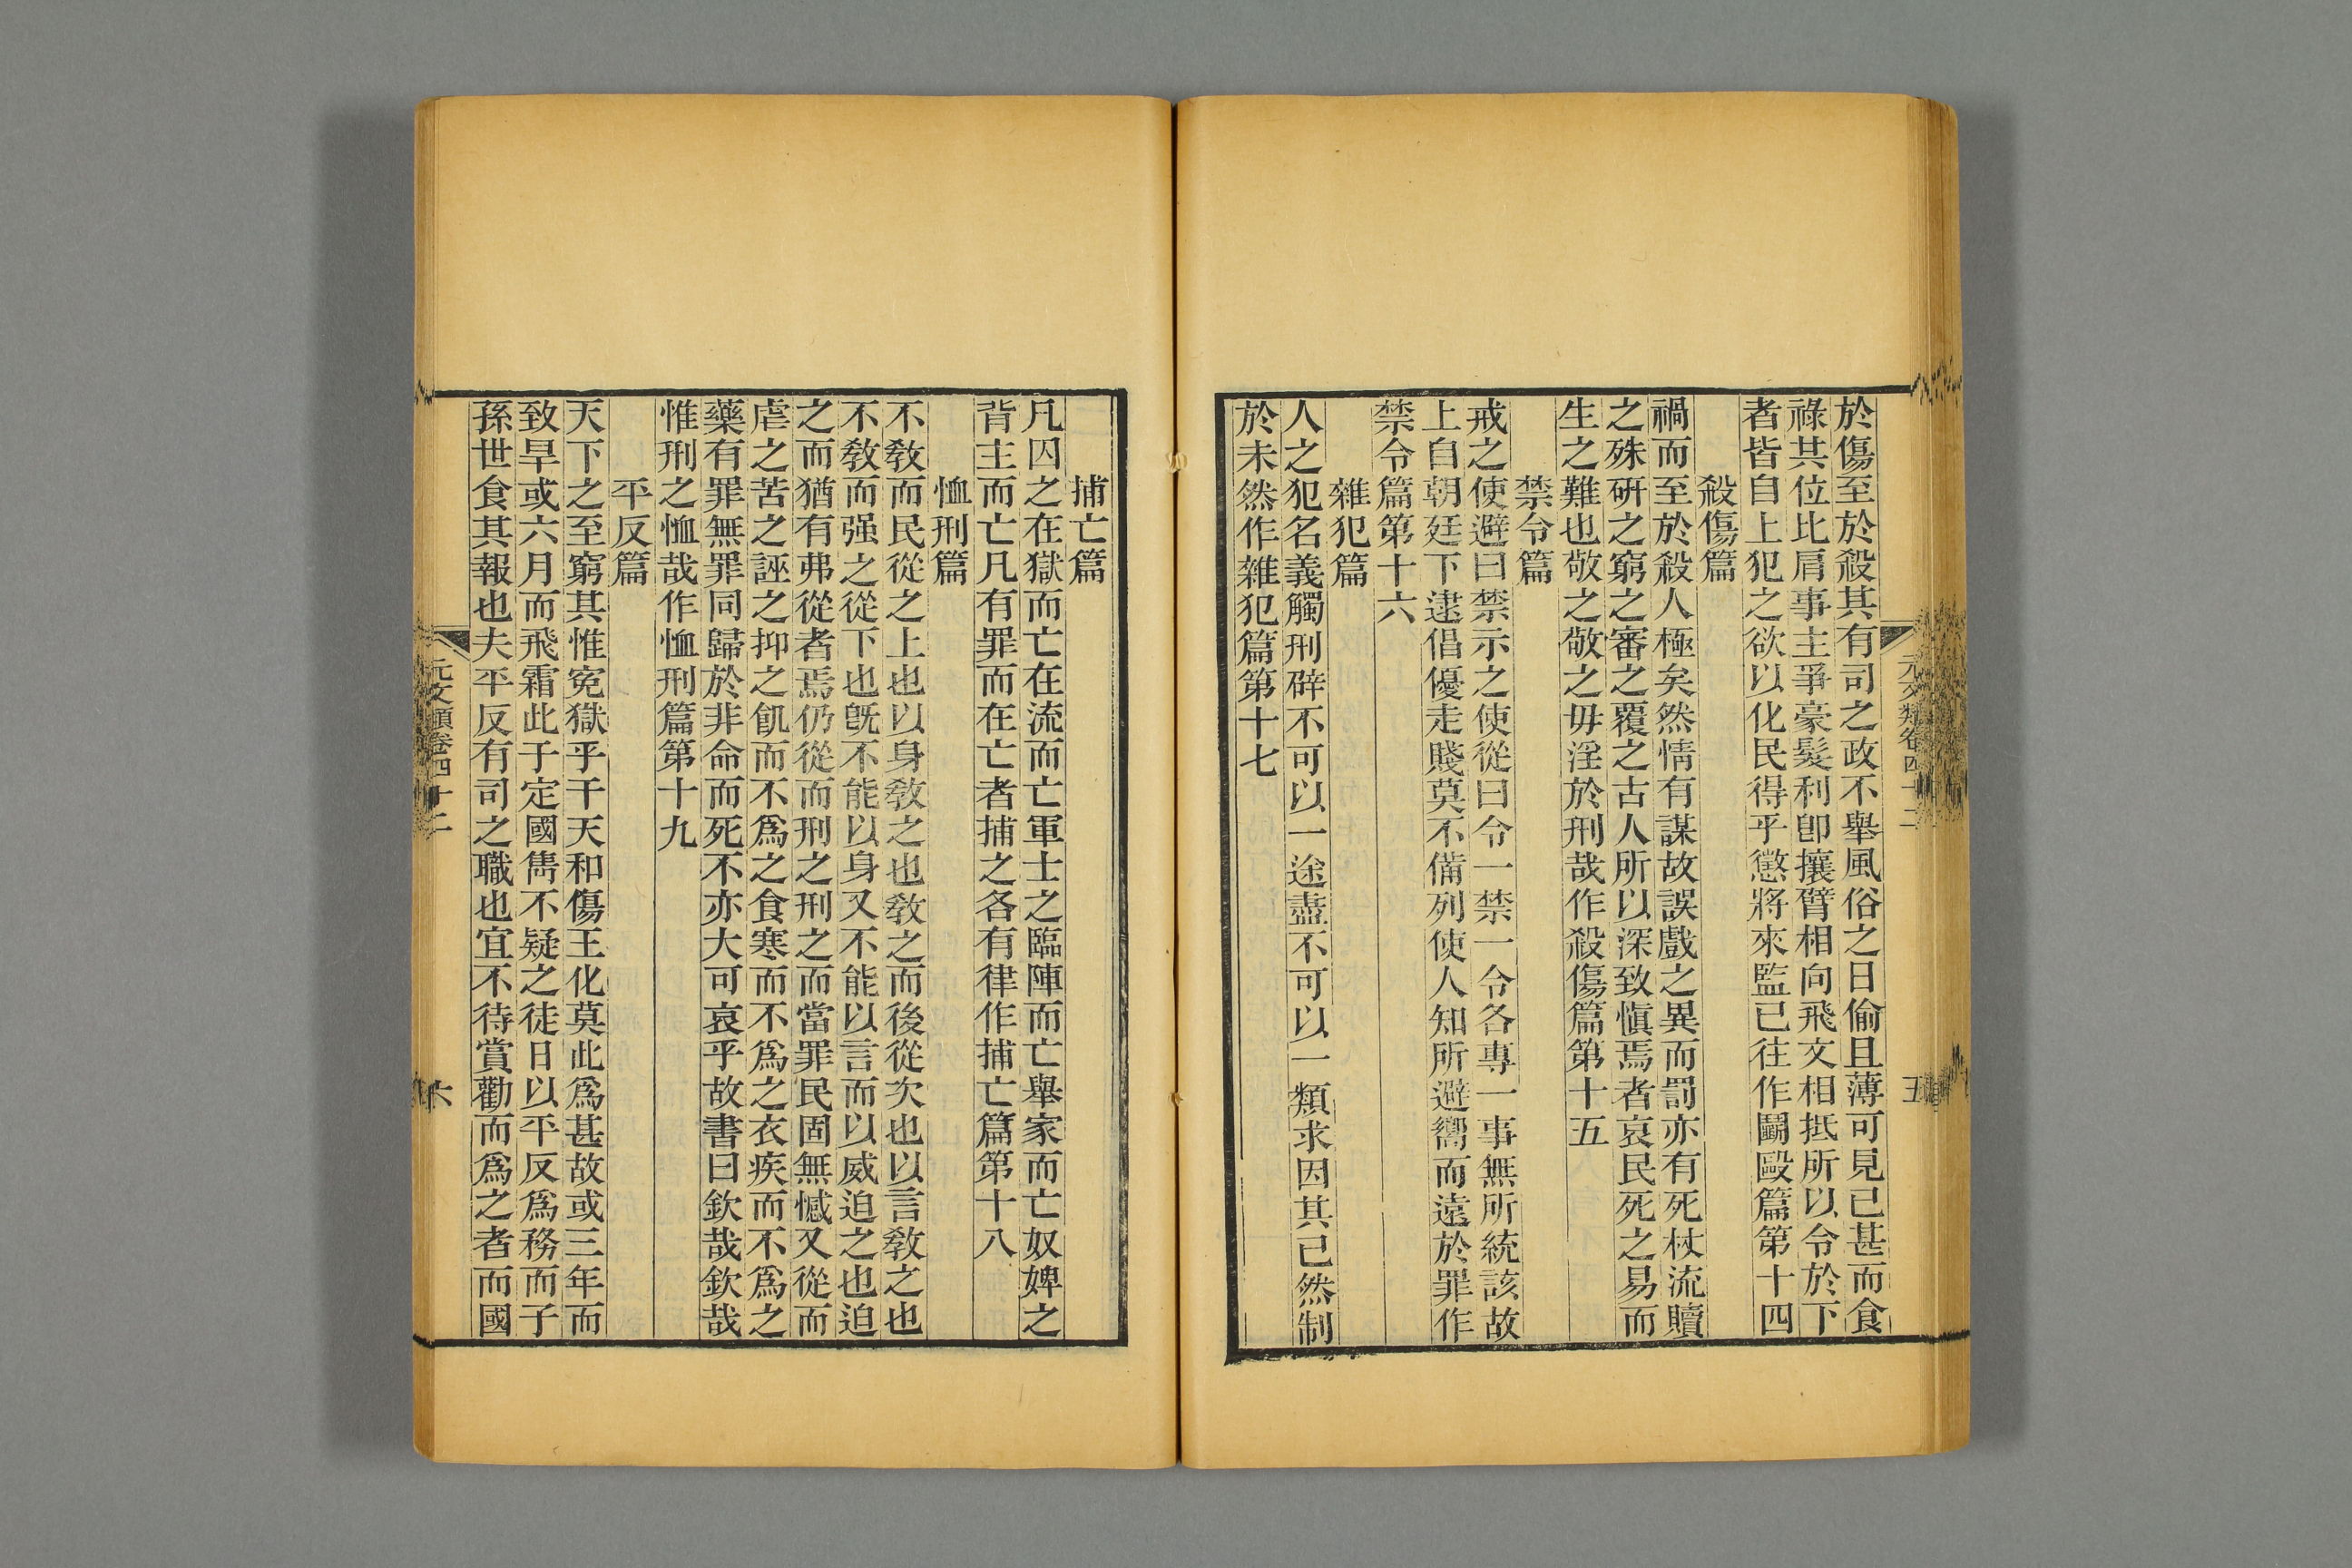 於傷至於殺其有司之政不舉風俗之日偷且薄可見已甚而食
祿其位比肩事主爭豪髮利卽攘臂相向飛文相抵所以令於下
者皆自上犯之欲以化民得乎懲將來監已往作鬬毆篇第十四
殺傷篇
禍而至於殺人極矣然情有謀故誤戲之異而罰亦有死杖流贖
之殊硏之窮之審之覆之古人所以深致愼焉者哀民死之易而
生之難也敬之敬之毋淫於刑哉作殺傷篇第十五
禁令篇
戒之使避曰禁示之使從曰令一禁一令各專一事無所統該故
上自朝廷下逮倡優走賤莫不備列使人知所避嚮而遠於罪作
禁令篇第十六
雜犯篇
人之犯名義觸刑辟不可以一途盡不可以一類求因其已然制
於未然作雜犯篇第十七
元文類卷四十二
五
捕亡篇
凡囚之在獄而亡在流而亡軍士之臨陣而亡舉家而亡奴婢之
背主而亡凡有罪而在亡者捕之各有律作捕亡篇第十八
恤刑篇
不敎而民從之上也以身敎之也敎之而後從次也以言敎之也
不敎而强之從下也旣不能以身又不能以言而以威迫之也迫
之而猶有弗從者焉仍從而刑之刑之而當罪民固無憾又從而
虐之苦之誣之抑之飢而不爲之食寒而不爲之衣疾而不爲之
藥有罪無罪同歸於非命而死不亦大可哀乎故書曰欽哉欽哉
惟刑之恤哉作恤刑篇第十九
平反篇
天下之至窮其惟寃獄乎干天和傷王化莫此爲甚故或三年而
致旱或六月而飛霜此于定國雋不疑之徒日以平反爲務而子
孫世食其報也夫平反有司之職也宜不待賞勸而爲之者而國
元文類卷四十二
六